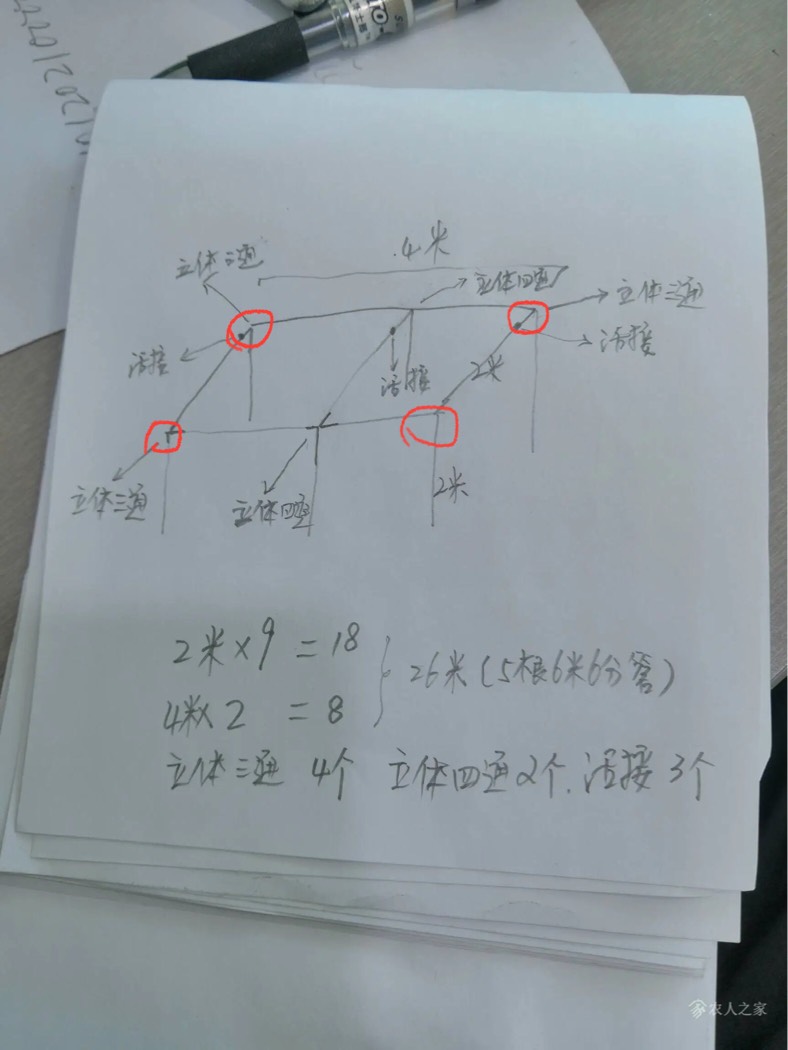 4米
立体三通
立体四通
立体三通
活接
活接
活接
2米
立体三通
立体四通
2米
2米×9=18
4米×2=8
26米(5根6米6分管)
立体三通 4个 立体四通2个.活接3个
农人之家